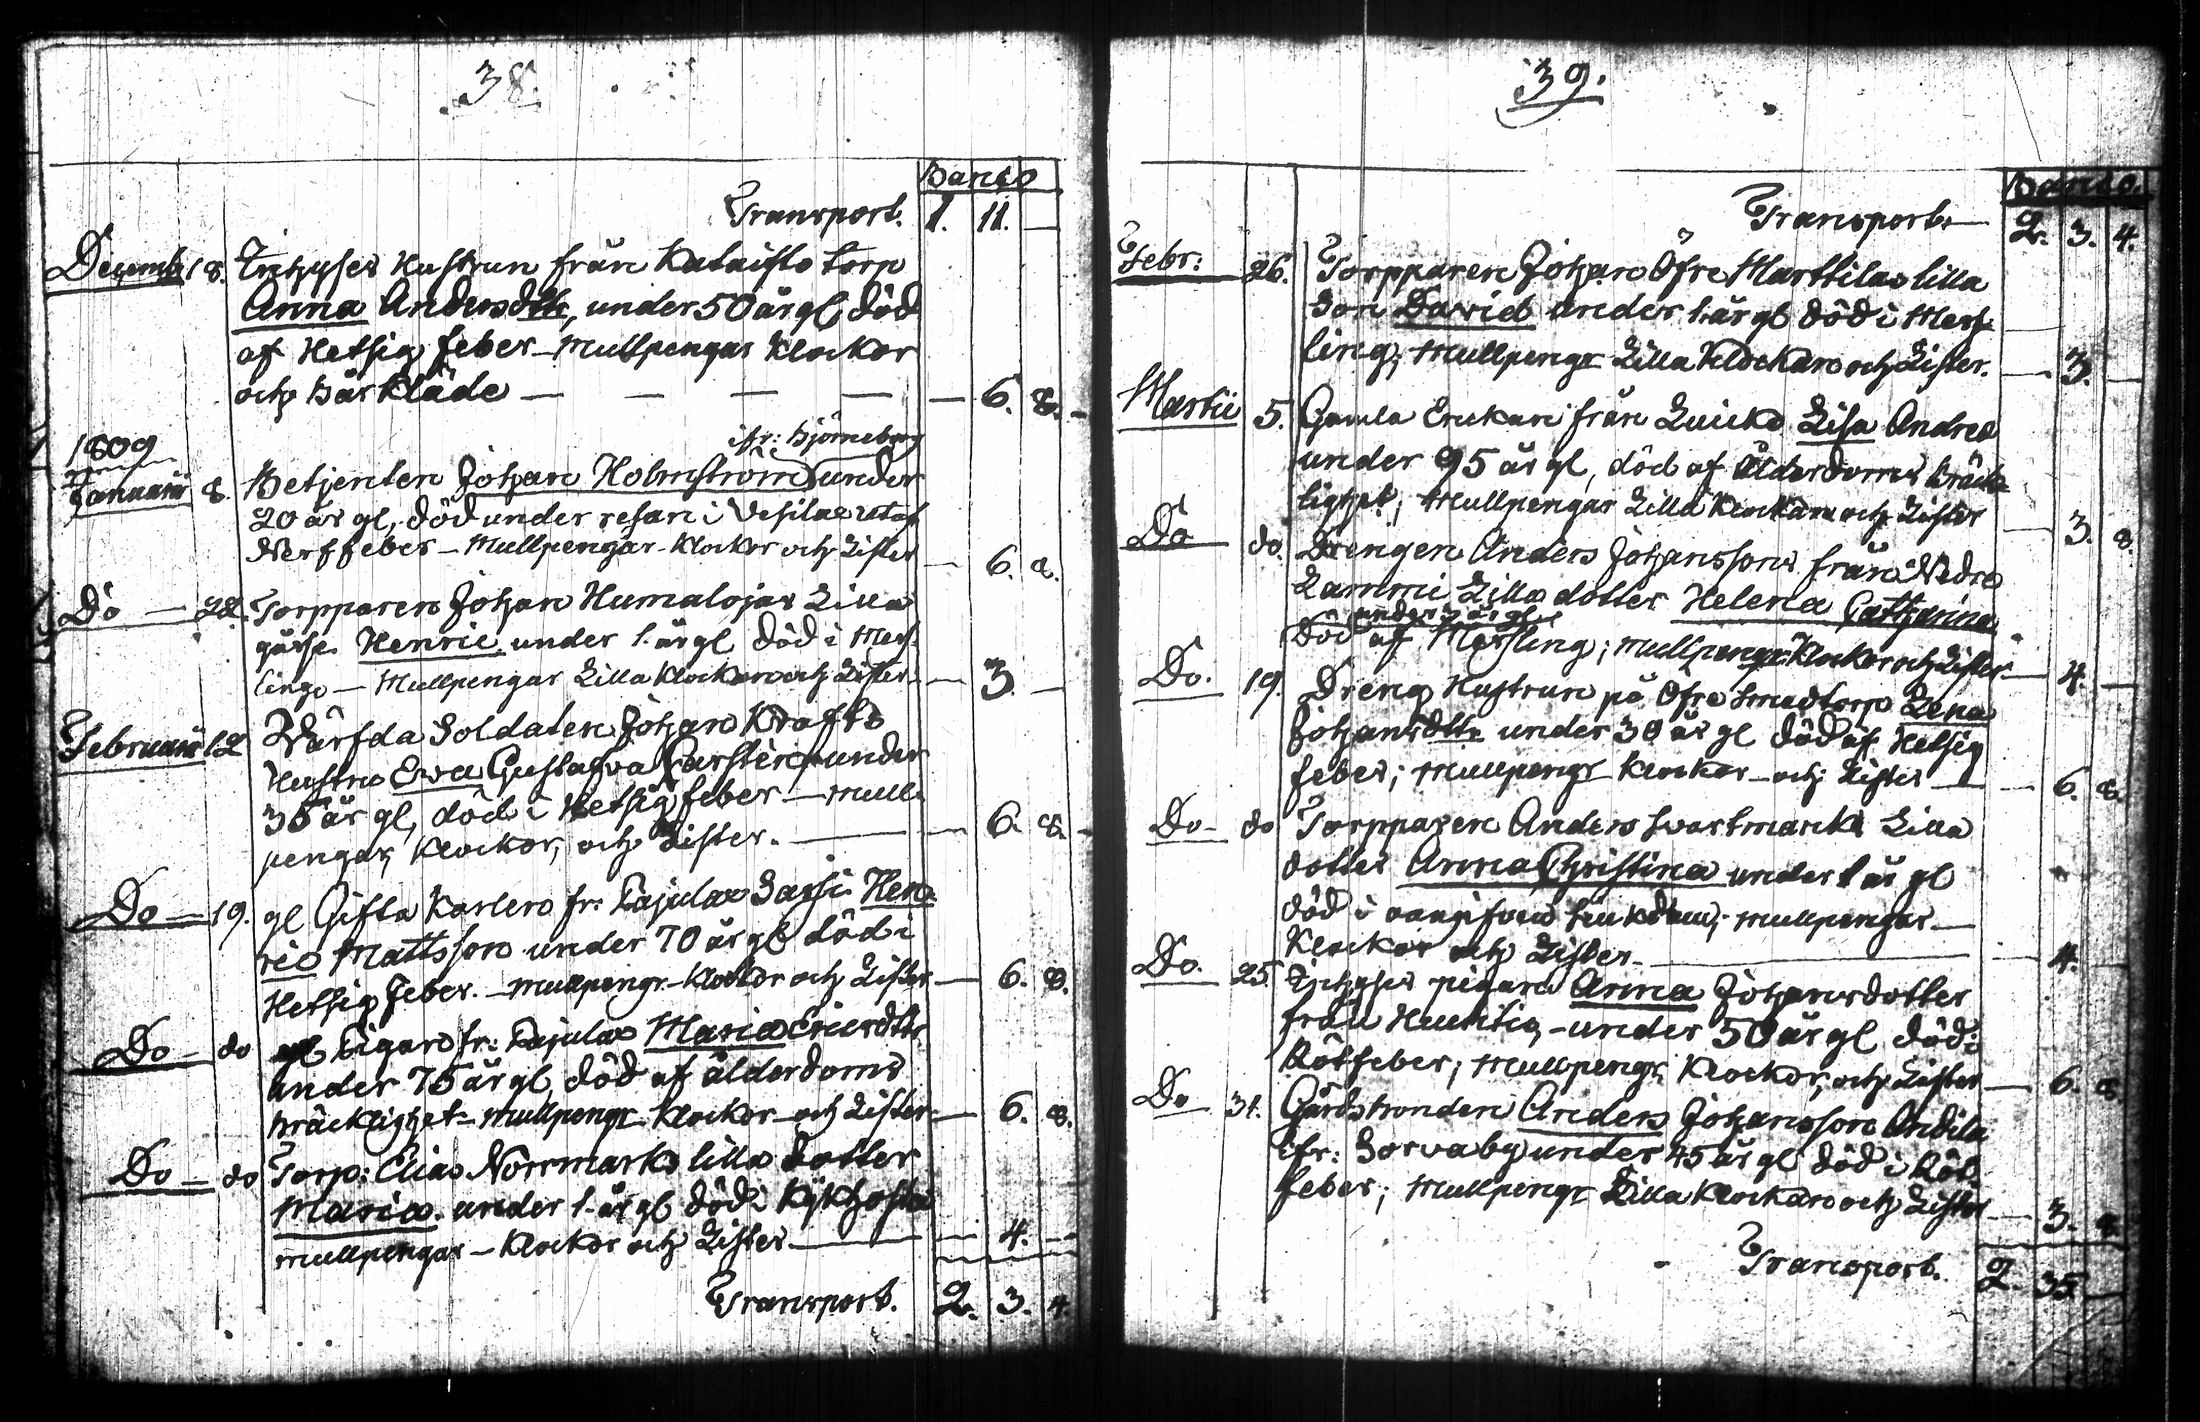 38.
Banco
Transport. 1. 11. —
Decemb. 18. Inhyses Hustrun från Kataisto torp
Anna Andersdtr, under 50 år gl. död
af Hetsig feber – Mullpengar Klockor
och Bårkläde — — — — 6. 8.
1809 ifr: Björneborg
Januarii 8. Betjenten Johan Holmström under
20 år gl, död under resan i Vesilax utaf
Nerffeber – Mullpengar – Klockor och Lister — 6. 8.
Do — 22. Torpparen Johan Humalojas Lilla
gåsse Henric under 1. år gl död i Mess-
ling – Mullpengar Lilla Klockan och Lister. — 3. —
Februarii 12 Värfda Soldaten Johan Krafts
Hustru Eva Gustafva under
35 år gl, död i Hetsig feber – mull-
pengar, Klockor, och Lister. — 6. 8.
Do — 19. gl Gifta Karlen fr: Pajula Sassi Hen-
ric Mattsson under 70 år gl död i
Hetsig feber. – mullpengr – Klockor och Lister — 6. 8.
Do — do gl Pigan fr: Pajula Maria Ericsdtr
under 75 år gl död af ålderdoms
bräcklighet – mullpengr Klockor – och Lister — 6. 8.
Do — do Torp: Elias Norrmarks lilla dotter
Maria under 1. år gl död i Kikhosta
mullpengar – Klockor och Lister — 4. —
Transport. 2. 3. 4.
39.
Banco
Transport. — 2. 3. 4.
Febr: 26. Torpparen Johan Öfre Marttilas lilla
Son David under 1. år gl död i Mess-
ling, mullpengr Lilla Klockan och Lister. — 3. —
Martii 5. Gamla Enckan från Lisa Andrea
under 95 år gl, död af Ålderdoms bräck-
lighet; mullpengar Lilla Klockan och Lister — 3. 8.
Do do. Drengen Anders Johanssons från Nedre
Lammi Lilla dotter Helena Catharina
under 3 år gl
död af Messling; mullpengr Klockor och Lister — 4. —
Do. 19. Dreng Hustrun på Öfre Smedtorp Lena
Johansdttr under 30 år gl död af Hetsig
feber; mullpengr Klockor – och Lister — 6. 8.
Do – do Torpparen Anders Svartmarks Lilla
dotter Anna Christina under 1 år gl
död i oangifven siukdom; mullpengar —
Klockor och Lister — 4. —
Do. 25 Inhyses pigan Anna Johansdotter
från – under 50 år gl död i
Rötfeber; mullpengr Klockor, och Lister — 6. 8.
Do 31. Gårdsbonden Anders Johansson Andila
ifr: Sorva by under 45 år gl död i Röt-
feber; mullpengr Lilla Klockan och Lister — 3. 8.
Transport. 2. 35. —